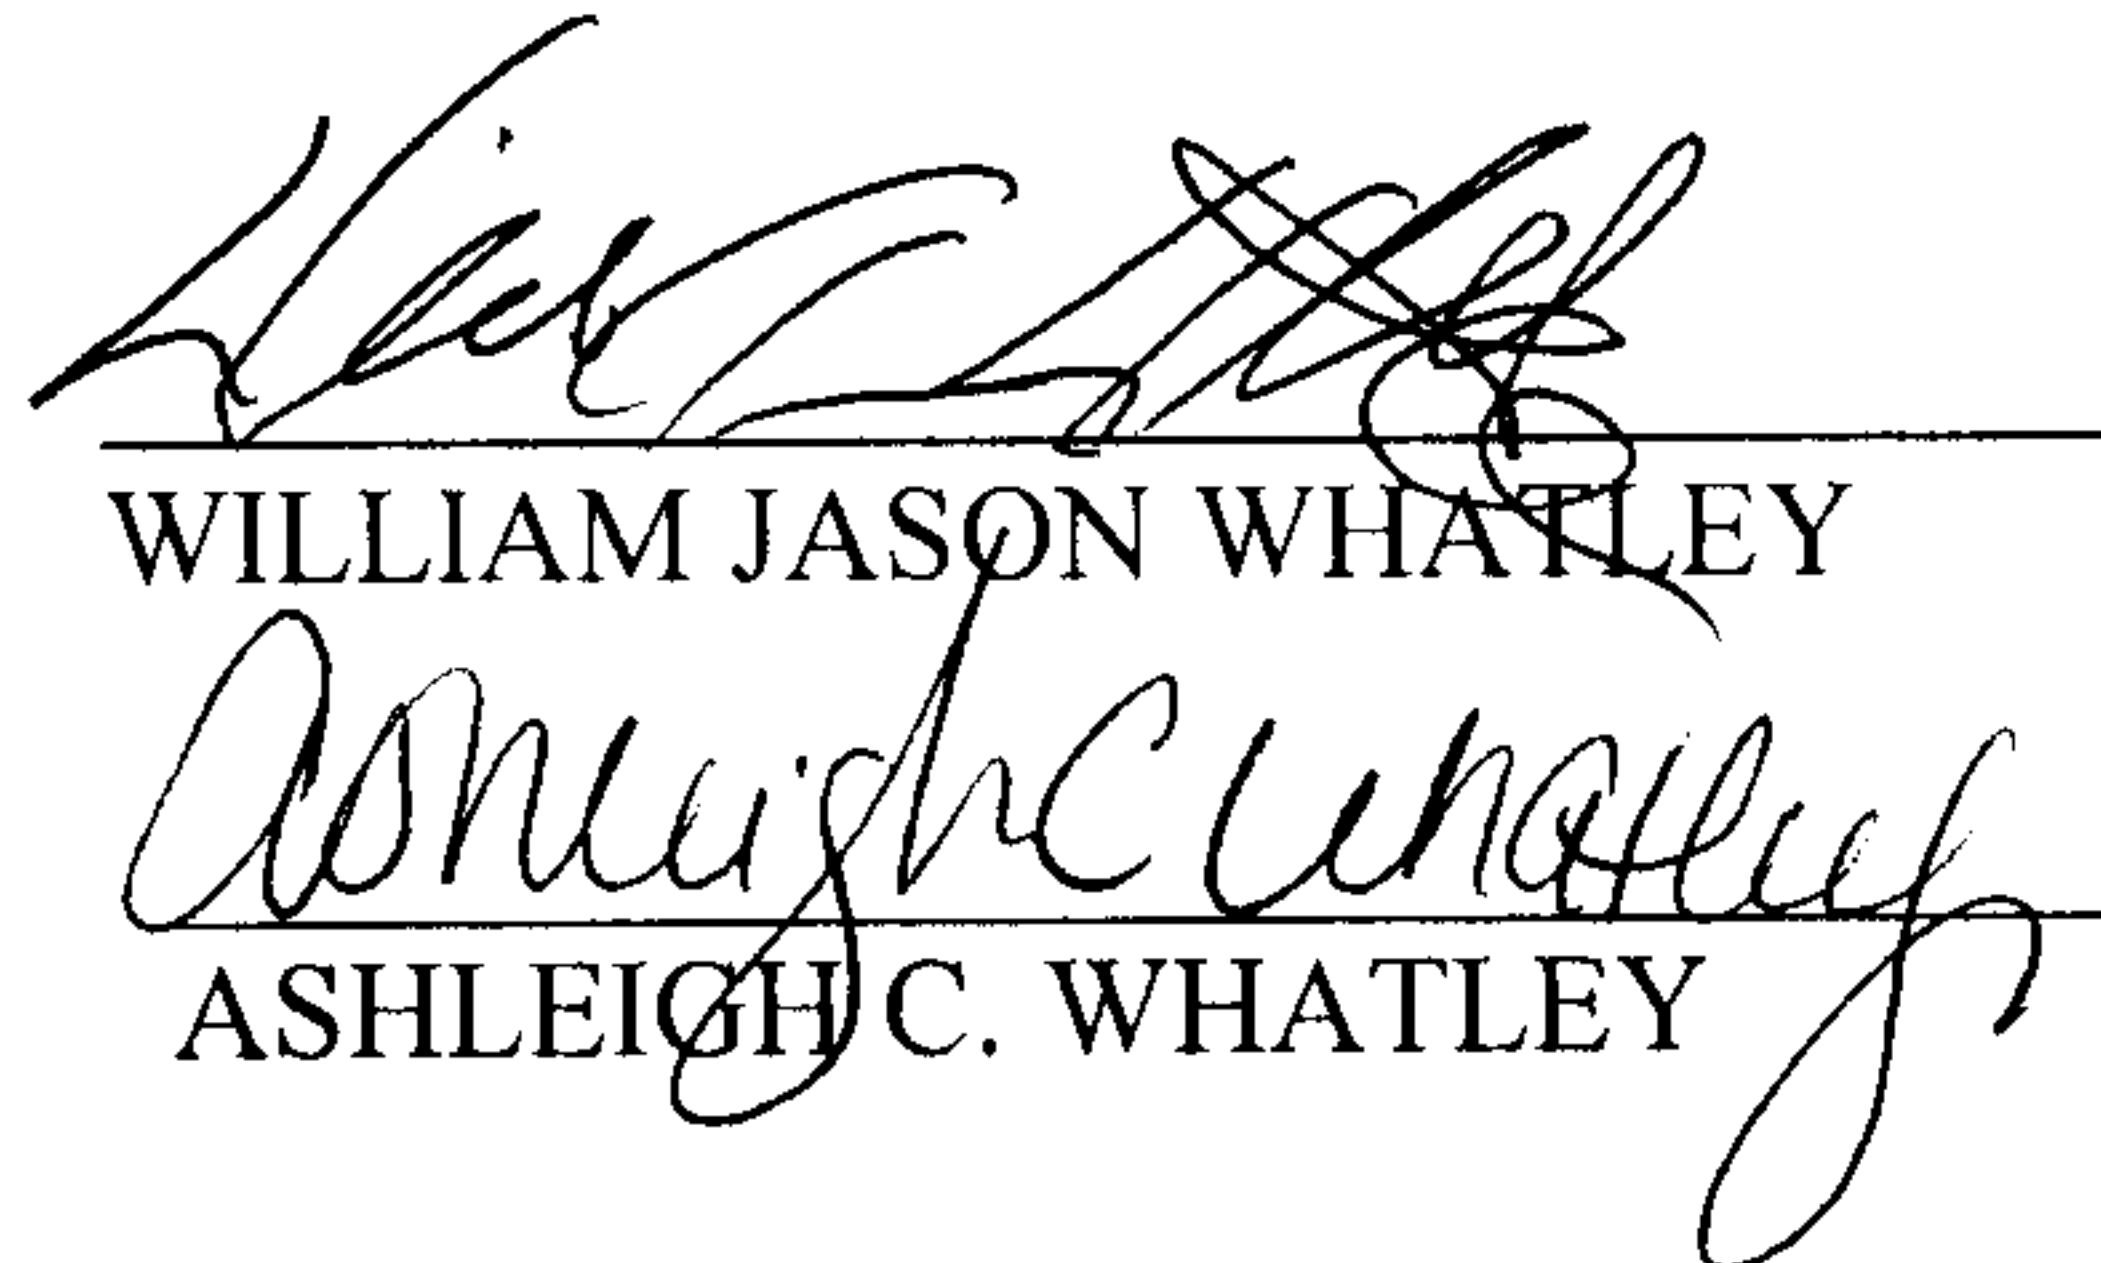 WILLIAM JASON WHATLEY
Ashleigh C Whatley
ASHLEIGH C. WHATLEY